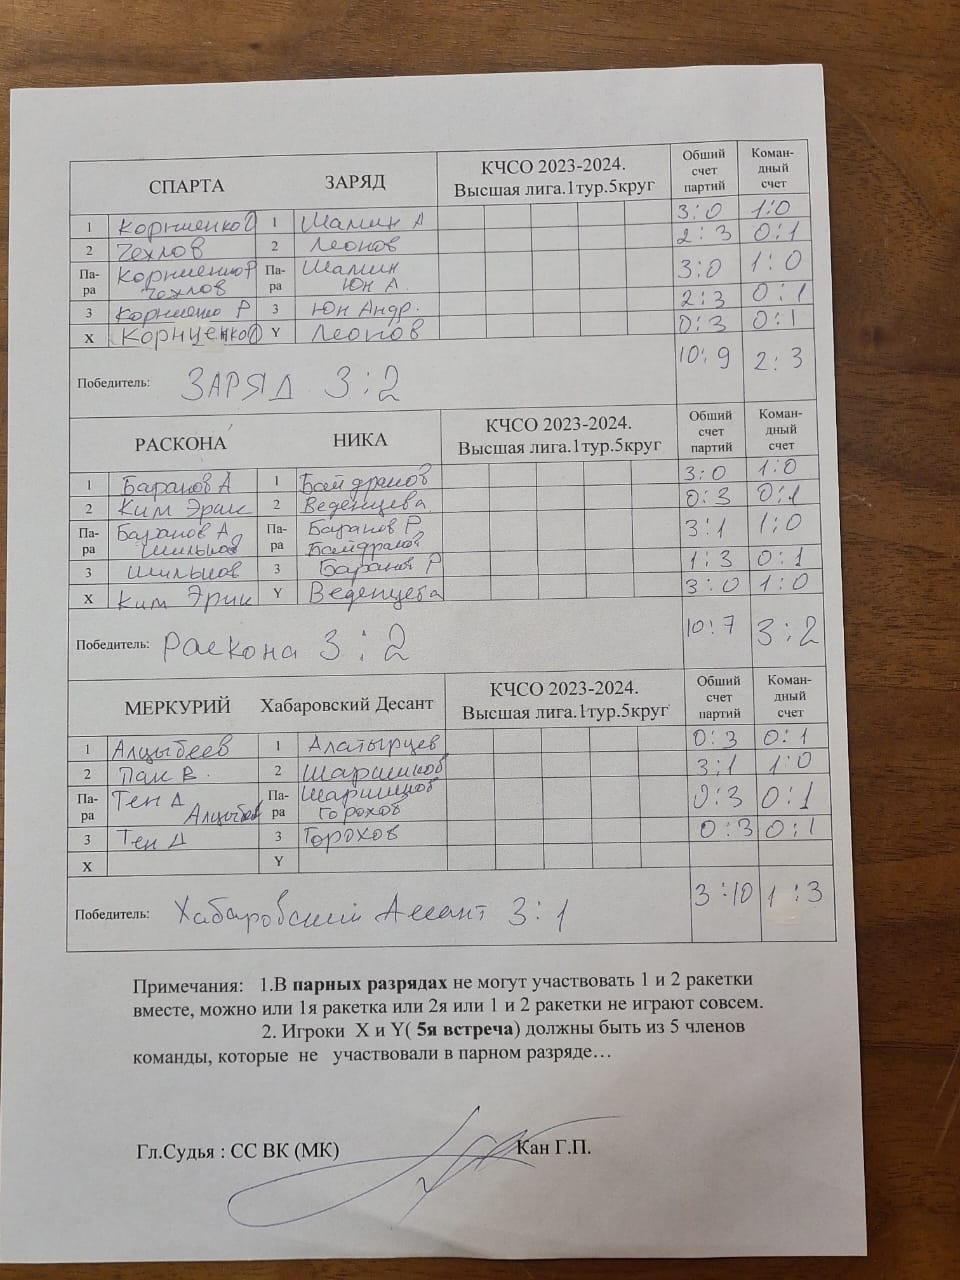 СПАРТА ЗАРЯД КЧСО 2023-2024. Высшая лига.1тур.5круг Обший счет партий Коман-дный счет
1 Корниенко О 1 Шамин А 3:0 1:0
2 Чехлов 2 Леонов 2:3 0:1
Па-ра Корниенко Р Чехлов Па-ра Шамин Юн А. 3:0 1:0
3 Корниенко Р 3 Юн Андр. 2:3 0:1
X Корниенко О Y Леонов 0:3 0:1
Победитель: ЗАРЯД 3:2 10:9 2:3
РАСКОНА НИКА КЧСО 2023-2024. Высшая лига.1тур.5круг Обший счет партий Коман-дный счет
1 Баранов А 1 Байдраков 3:0 1:0
2 Ким Эрик 2 Веденцева 0:3 0:1
Па-ра Баранов А Шильцов Па-ра Баранов Р Байдраков 3:1 1:0
3 Шильцов 3 Баранов Р 1:3 0:1
X Ким Эрик Y Веденцева 3:0 1:0
Победитель: Раскона 3:2 10:7 3:2
МЕРКУРИЙ Хабаровский Десант КЧСО 2023-2024. Высшая лига.1тур.5круг Обший счет партий Коман-дный счет
1 Алцыбеев 1 Алатырцев 0:3 0:1
2 Пак В. 2 Шаршиков 3:1 1:0
Па-ра Тен Д Алцыбеев Па-ра Шаршиков Горохов 0:3 0:1
3 Тен Д 3 Горохов 0:3 0:1
X Y
Победитель: Хабаровский Десант 3:1 3:10 1:3
Примечания: 1.В парных разрядах не могут участвовать 1 и 2 ракетки
вместе, можно или 1я ракетка или 2я или 1 и 2 ракетки не играют совсем.
2. Игроки X и Y( 5я встреча) должны быть из 5 членов
команды, которые не участвовали в парном разряде…
Гл.Судья : СС ВК (МК) Кан Г.П.